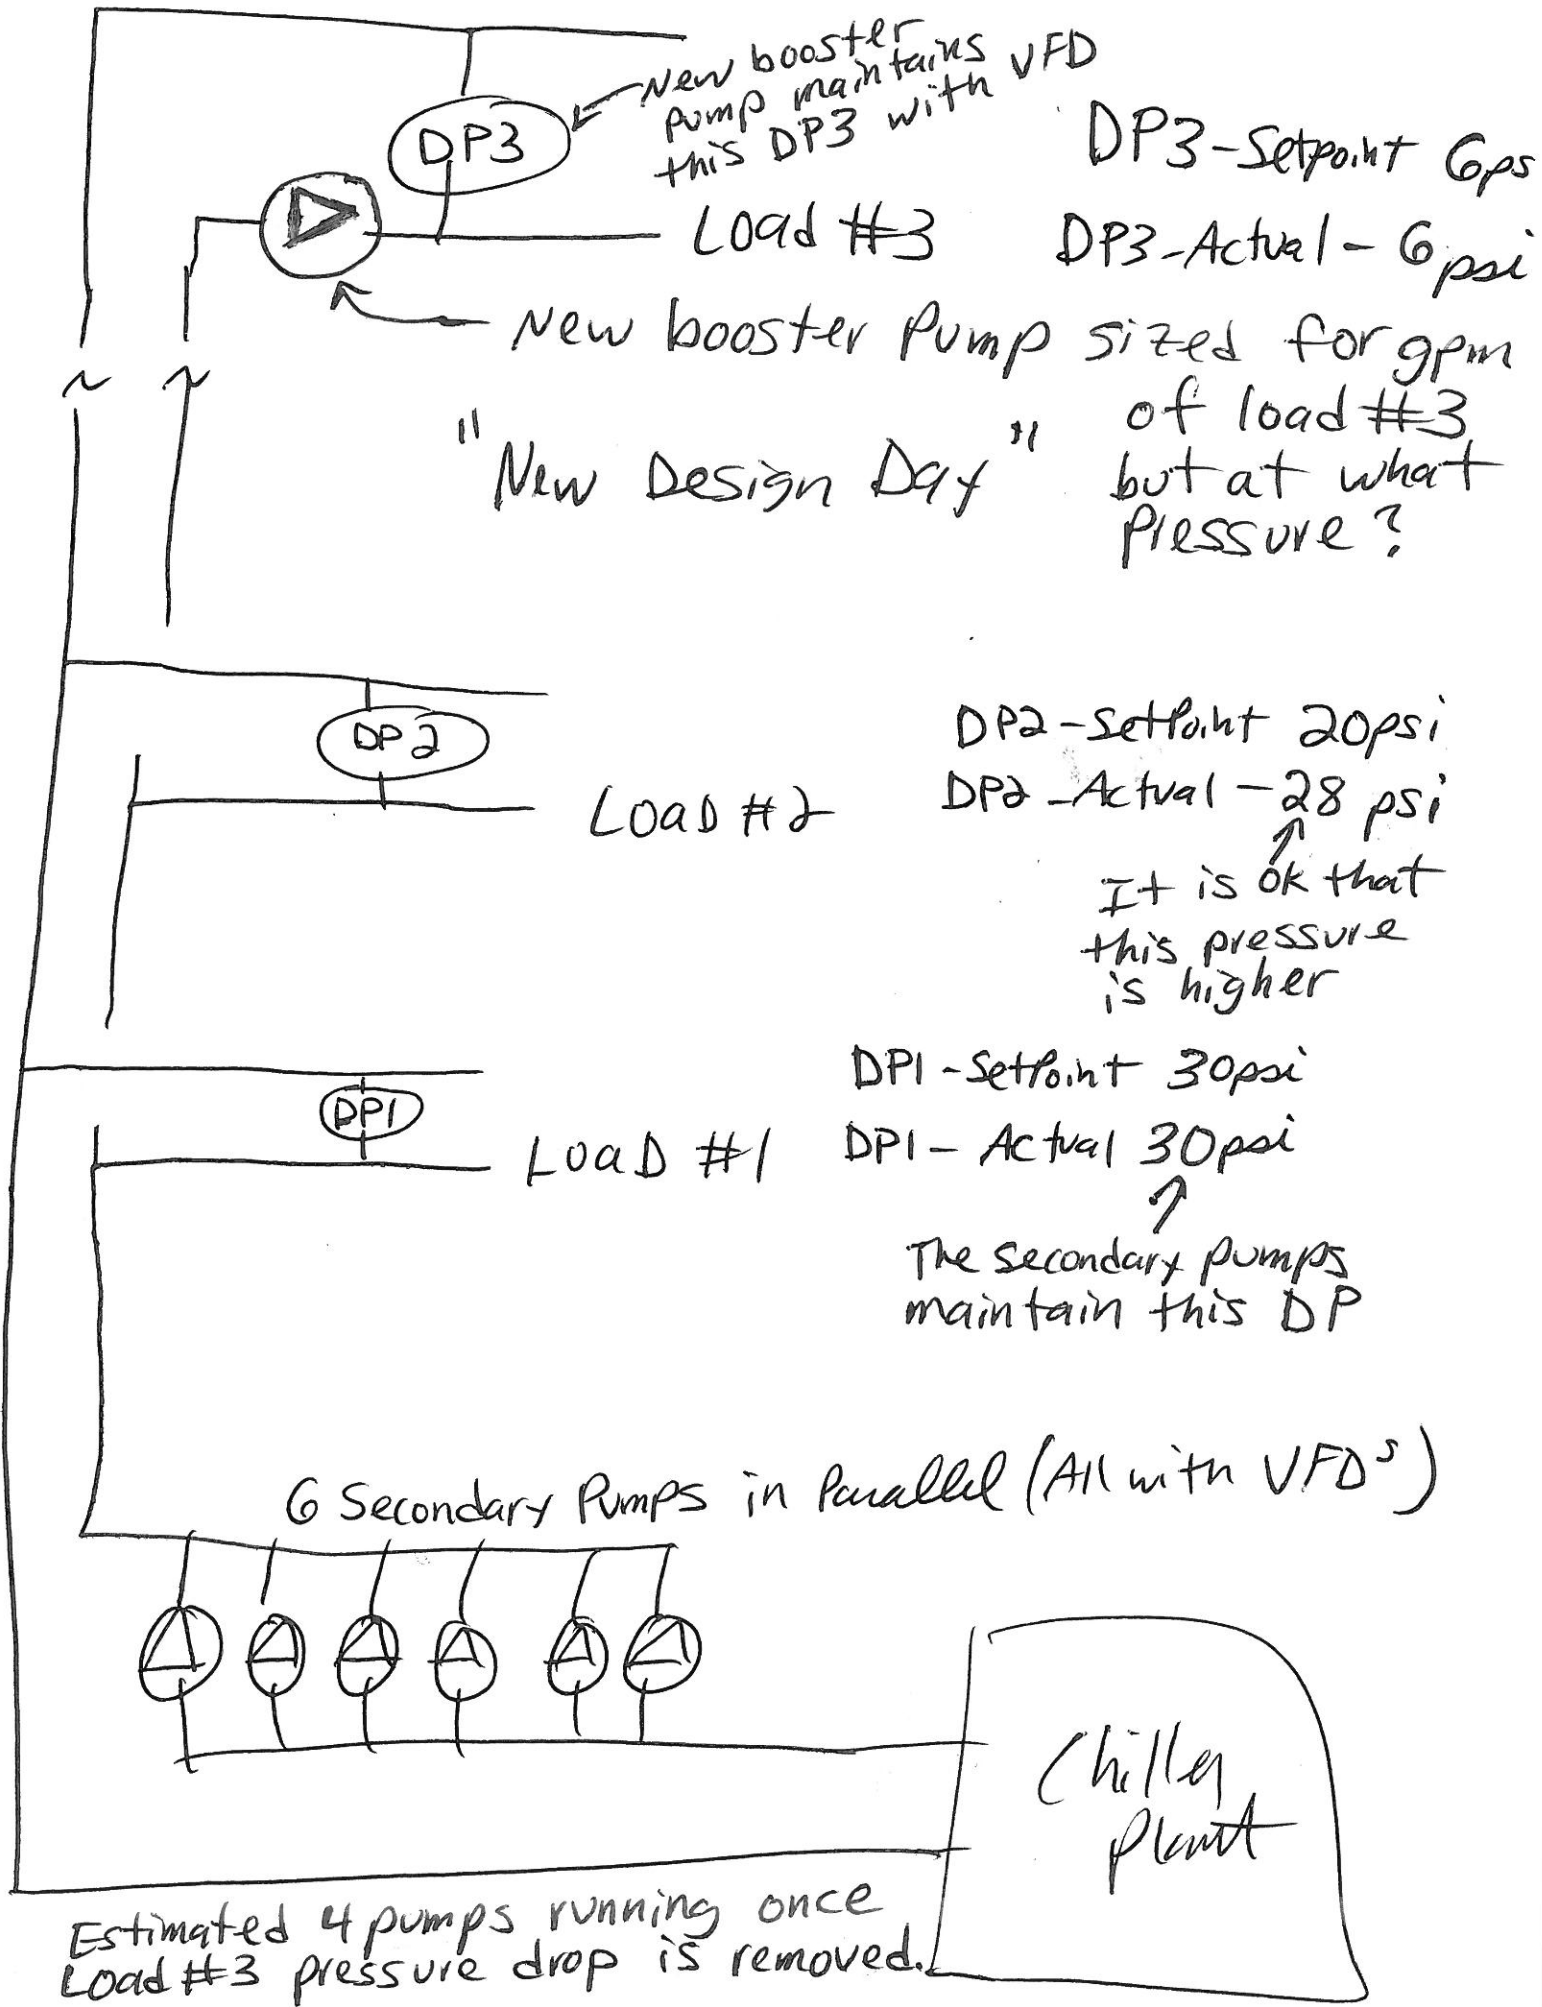 New booster
pump maintains VFD
this DP3 with
DP3
DP3-Setpoint 6ps
Load #3
DP3-Actual - 6psi
New booster Pump sized for gpm
of load #3
"New Design Day"
but at what
pressure?
DP2
DP2-SetPoint 20psi
Load #2
DP2-Actual - 28 psi
It is ok that
this pressure
is higher
DP1
DP1-SetPoint 30psi
Load #1
DP1- Actual 30psi
The secondary pumps
maintain this DP
6 Secondary Pumps in Parallel (All with VFDs)
Chiller
Plant
Estimated 4 pumps running once
Load #3 pressure drop is removed.